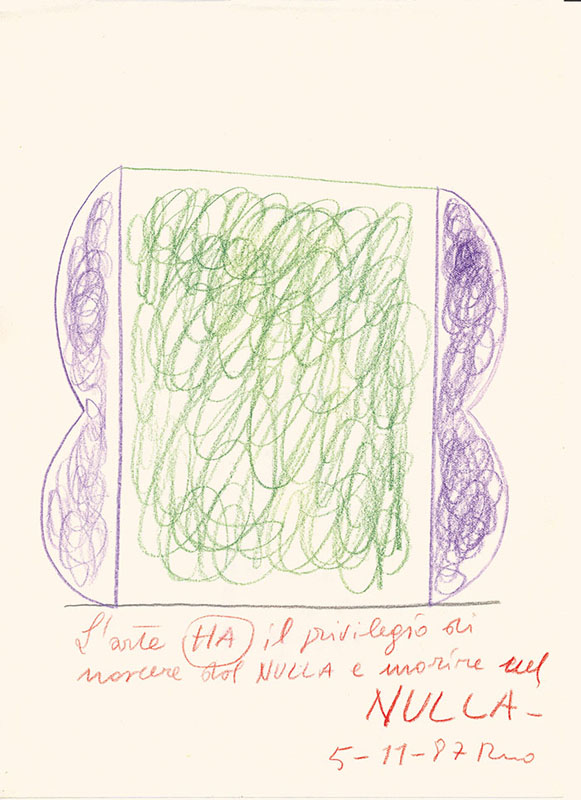 L'arte HA il privilegio di
nascere dal NULLA e morire nel
NULLA-
5-11-87